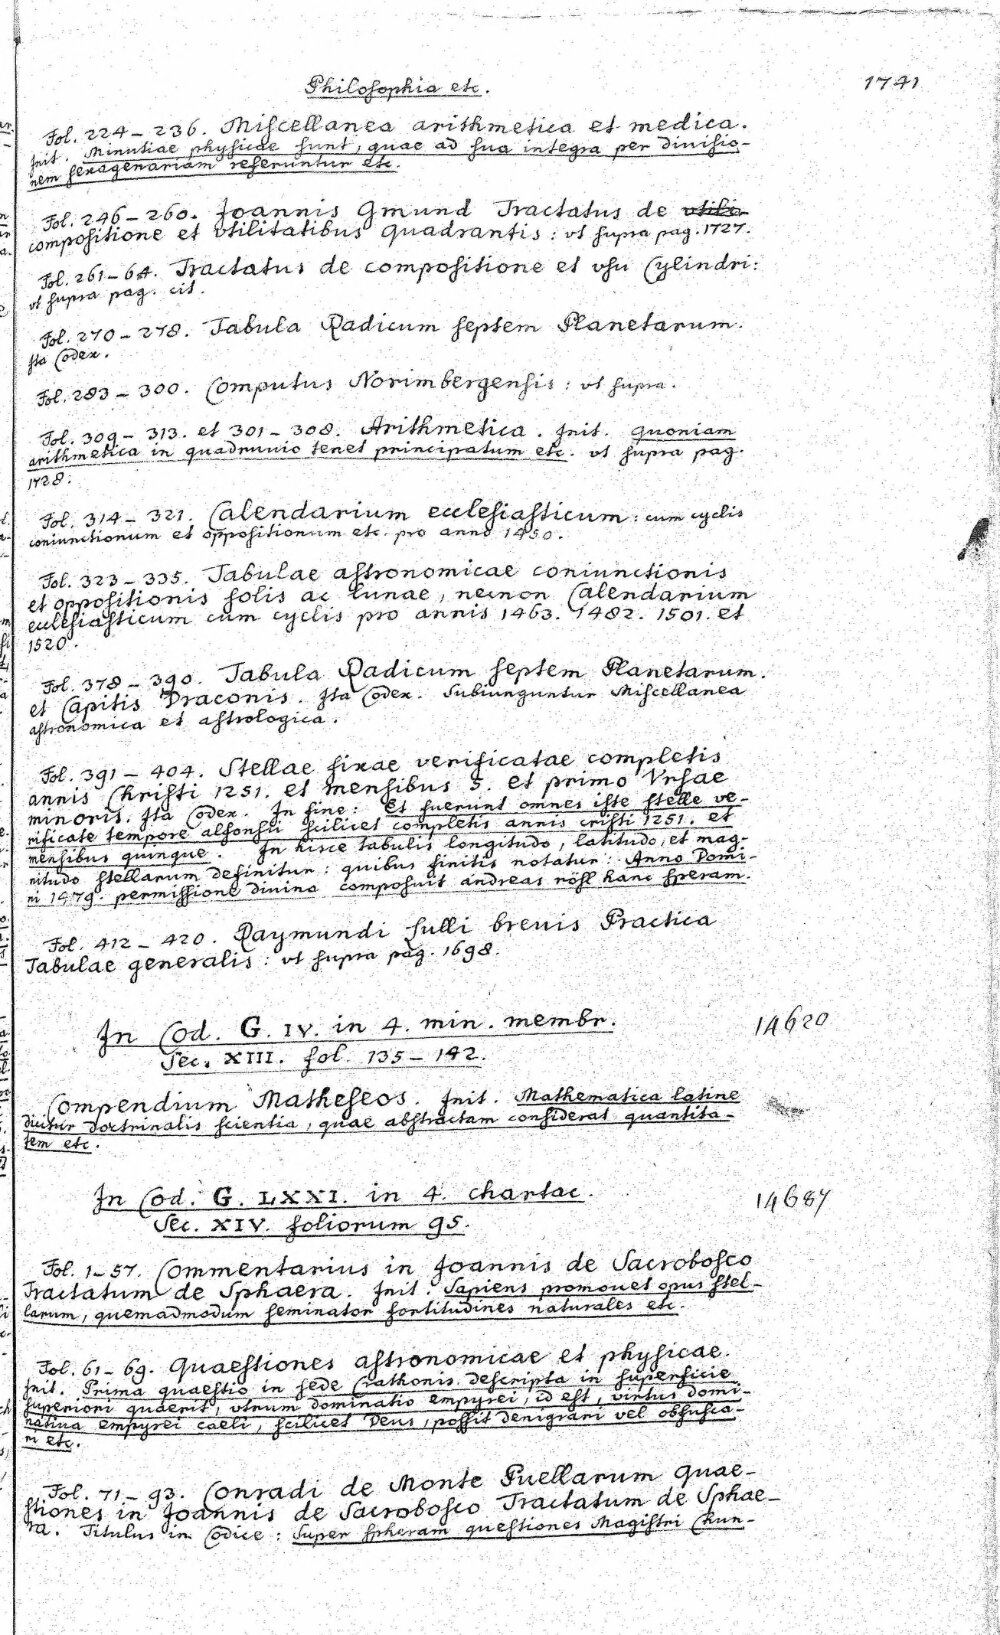 Philosophia etc.
1741
Fol. 224 – 236. Miscellanea arithmetica et medica.
Init. Minutiae physicae sunt, quae ad sua integra per divisio-
nem sexagenariam referuntur etc.
Fol. 246 – 260. Joannis Gmund Tractatus de utili-
compositione et vtilitatibus Quadrantis: vt supra pag. 1727.
Fol. 261 – 64. Tractatus de compositione et vsu Cylindri:
vt supra pag. cit.
Fol. 270 – 278. Tabula Radicum septem Planetarum.
Ita Codex.
Fol. 283 – 300. Computus Norimbergensis: vt supra.
Fol. 309 – 313. et 301 – 308. Arithmetica. Init. Quoniam
arithmetica in quadruuio tenet principatum etc. vt supra pag.
1728.
Fol. 314 – 321. Calendarium ecclesiasticum: cum cyclis
coniunctionum et oppositionum etc. pro anno 1450.
Fol. 323 – 335. Tabulae astronomicae coniunctionis
et oppositionis solis ac lunae, necnon Calendarium
ecclesiasticum cum cyclis pro annis 1463. 1482. 1501. et
1520.
Fol. 378 – 390. Tabula Radicum septem Planetarum.
et Capitis Draconis. Ita Codex. Subiunguntur Miscellanea
astronomica et astrologica.
Fol. 391 – 404. Stellae fixae verificatae completis
annis Christi 1251. et mensibus 5. et primo Vrsae
minoris. Ita Codex. In fine: Et fuerunt omnes iste stelle ve-
rificate tempore alfonsii scilicet completis annis cristi 1251. et
mensibus quinque. In hisce tabulis longitudo, latitudo, et mag-
nitudo stellarum definitur: quibus finitis notatur: Anno Domi-
ni 1479. permissione divina composuit andreas röhl hanc speram.
Fol. 412 – 420. Raymundi Lulli brevis Practica
Tabulae generalis: vt supra pag. 1698.
In Cod. G. IV. in 4. min. membr.
14620
Sec. XIII. fol. 135 – 142.
Compendium Matheseos. Init. Mathematica latine
dicitur doctrinalis scientia, quae abstractam considerat quantita-
tem etc.
In Cod. G. LXXI. in 4. chartac.
14687
Sec. XIV. foliorum 95.
Fol. 1 – 57. Commentarius in Joannis de Sacrobosco
Tractatum de Sphaera. Init. Sapiens promouet opus stel-
larum, quemadmodum seminator fortitudines naturales etc.
Fol. 61 – 69. Quaestiones astronomicae et physicae.
Init. Prima quaestio in sede Crathonis descripta in superficie
superiori quaerit, vtrum dominatio empyrei, id est, virtus domi-
natiua empyrei caeli, scilicet Deus, possit denigrari vel obfusca-
ri etc.
Fol. 71 – 93. Conradi de Monte Puellarum Quae-
stiones in Joannis de Sacrobosco Tractatum de Sphae-
ra. Titulus in Codice: Super speram questiones Magistri Chun-